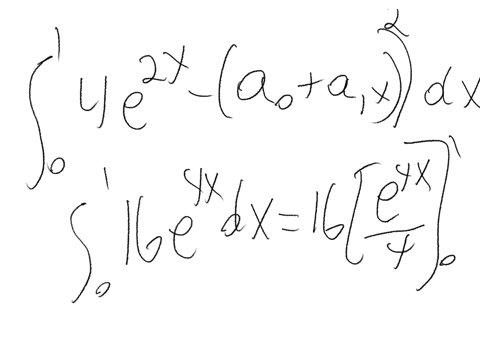 ∫₀¹ 4e^{2x} - (a₀ + a₁x))² dx
∫₀¹ 16e^{4x} dx = 16[e^{4x}/4]₀¹